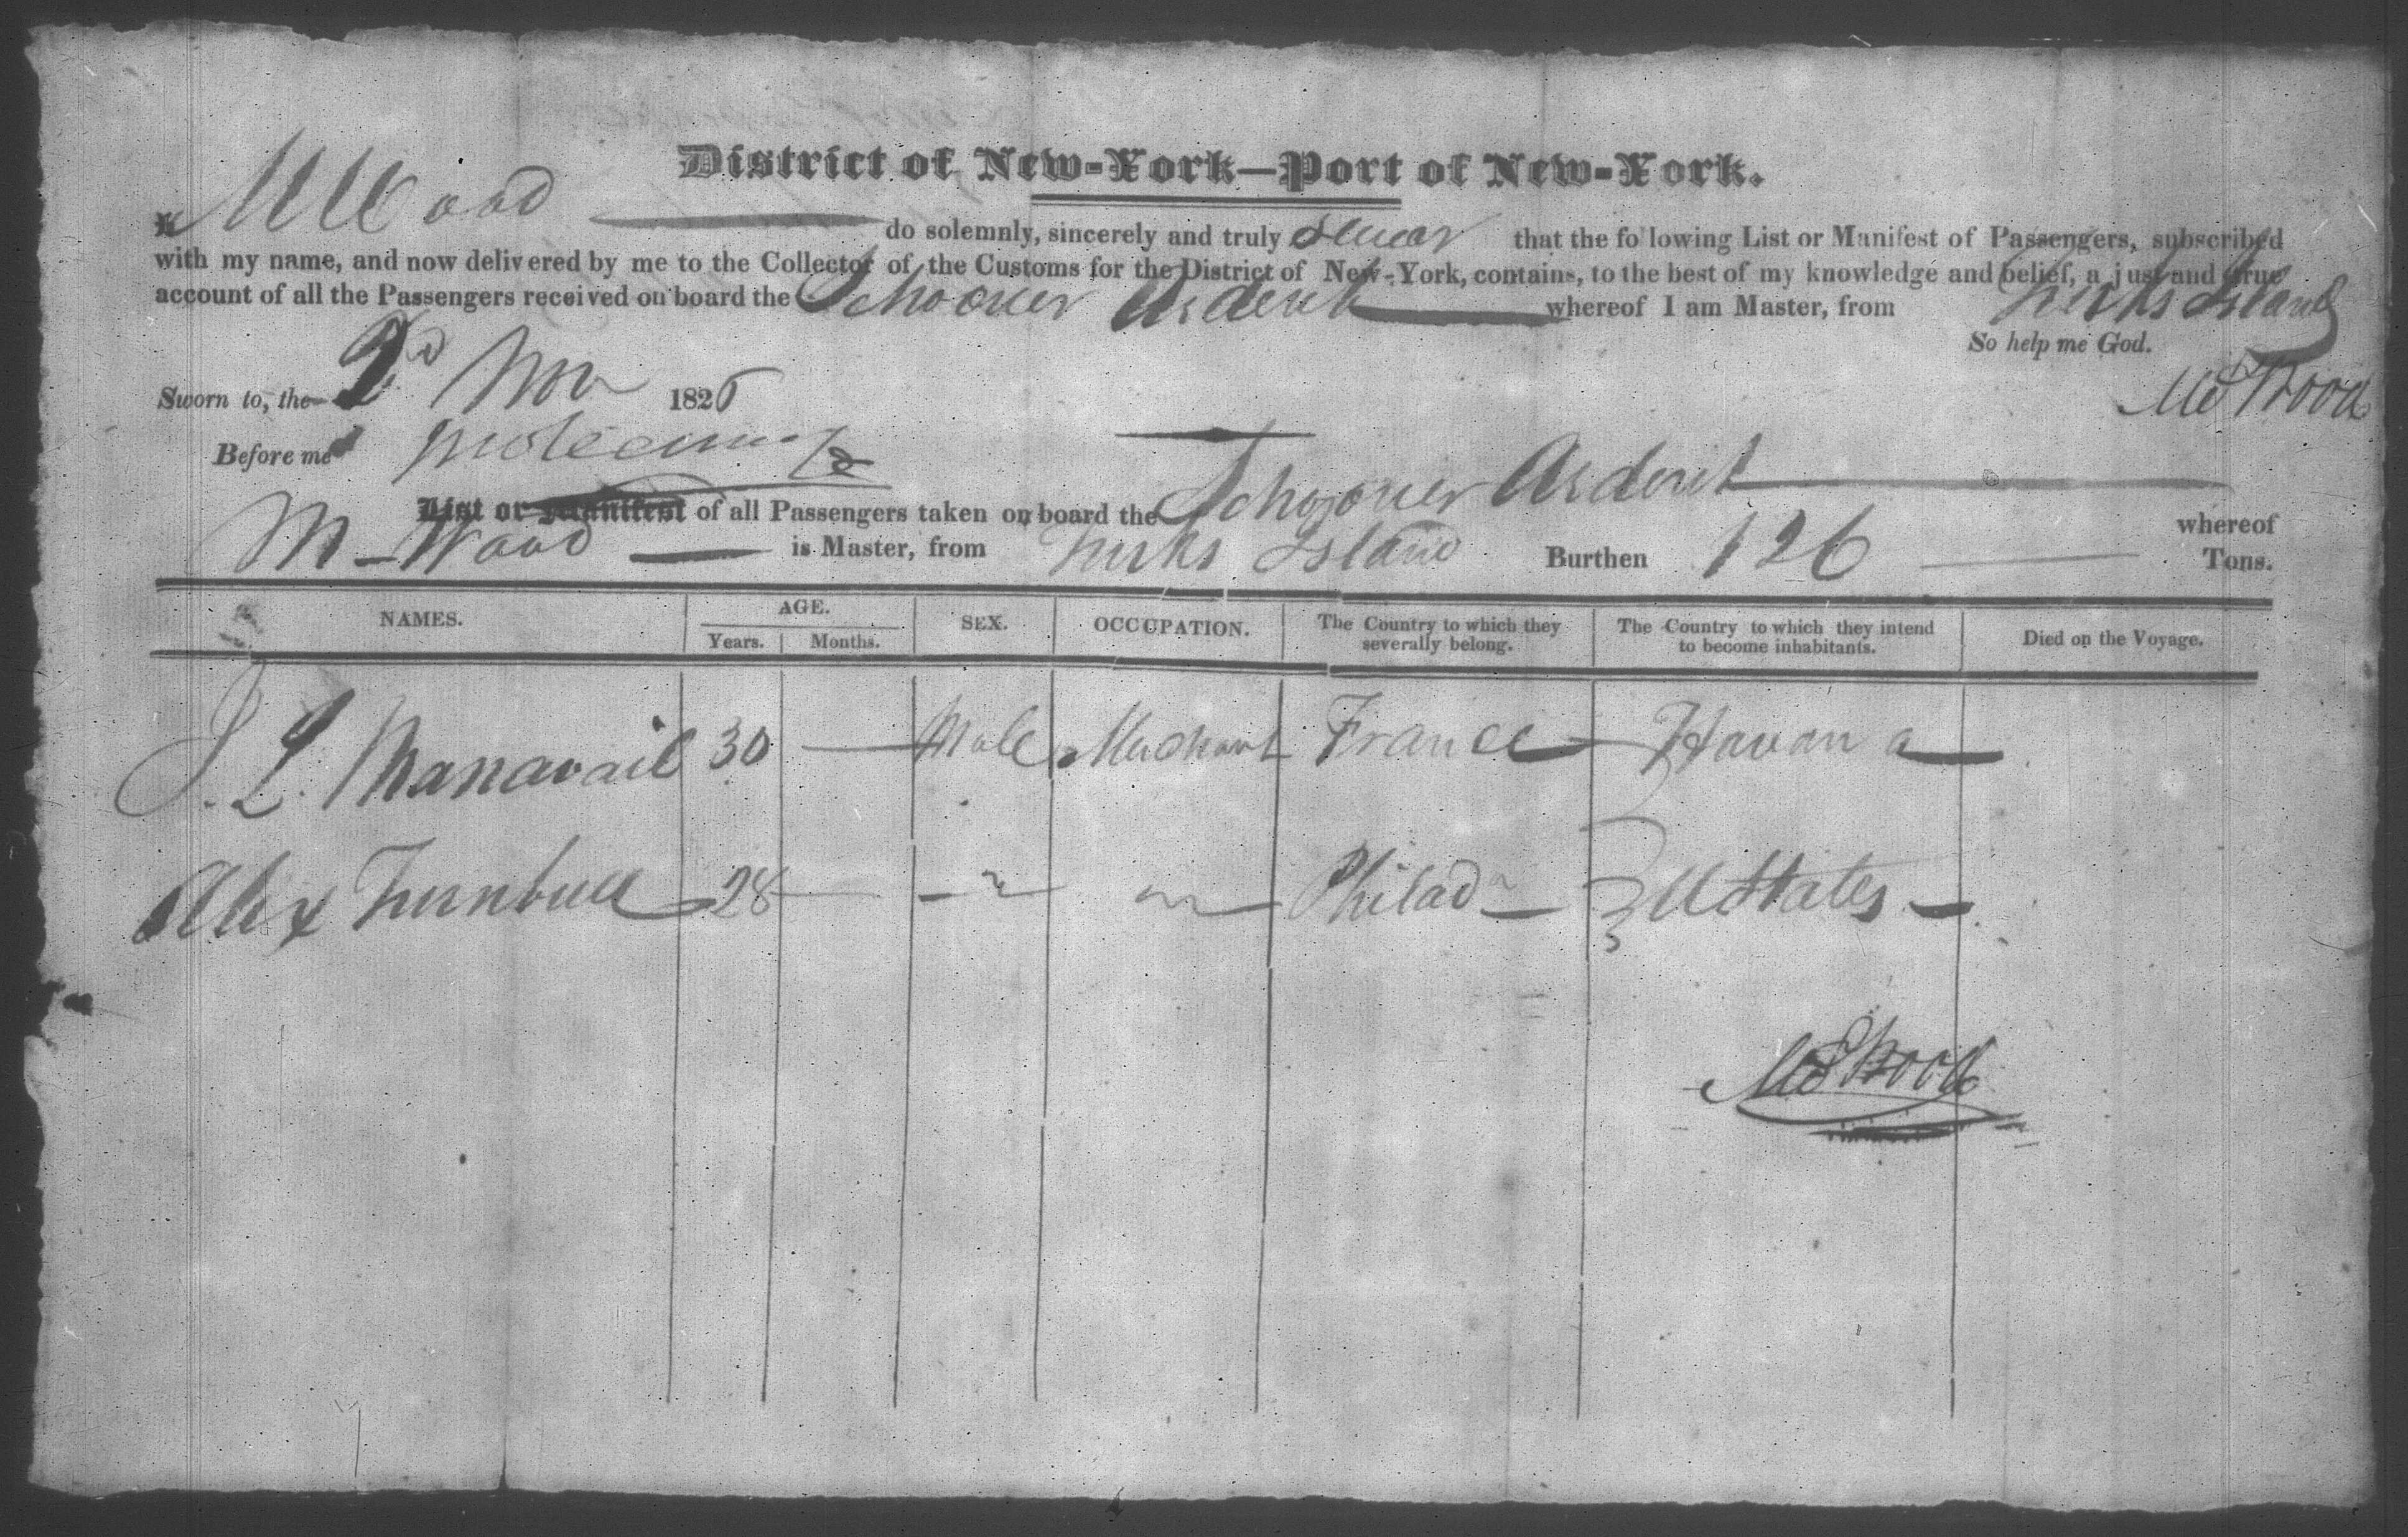 District of New-York—Port of New-York.
I, M Wood do solemnly, sincerely and truly swear that the following List or Manifest of Passengers, subscribed
with my name, and now delivered by me to the Collector of the Customs for the District of New-York, contains, to the best of my knowledge and belief, a just and true
account of all the Passengers received on board the Schooner Ardent whereof I am Master, from Turks Island
So help me God.
Sworn to, the 2d Nov 1825
M Wood
Before me
List or Manifest of all Passengers taken on board the Schooner Ardent whereof
M Wood is Master, from Turks Island Burthen 126 Tons.
NAMES. AGE. SEX. OCCUPATION. The Country to which they severally belong. The Country to which they intend to become inhabitants. Died on the Voyage.
Years. Months.
J. L. Manavail 30 — Male Merchant France Havana
Alex Turnbull 28 — Philad U States
M Wood